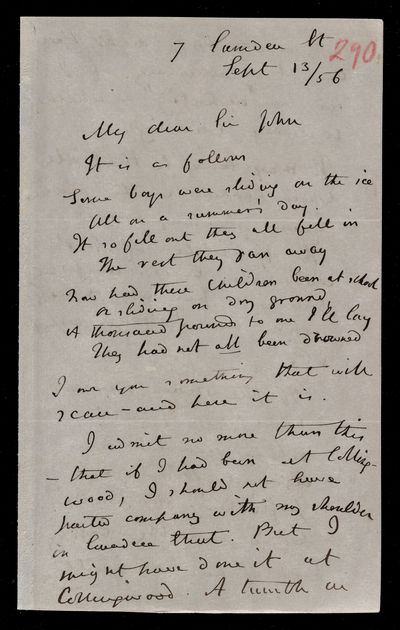 7 Camden St 290
Sept 13/56
My dear Sir John
It is as follows
Some boys were sliding on the ice
All on a summer's day.
It so fell out they all fell in
The rest they ran away
Now had these Children been at school
Or sliding on dry ground,
A thousand pounds to one I'll lay
They had not all been drowned
I owe you something that will
scan – and here it is.
I admit no more than this
– that if I had been at Colling-
wood, I should not have
parted company with my shoulder
in Camden Street. But I
might have done it at
Collingwood. A tumble on